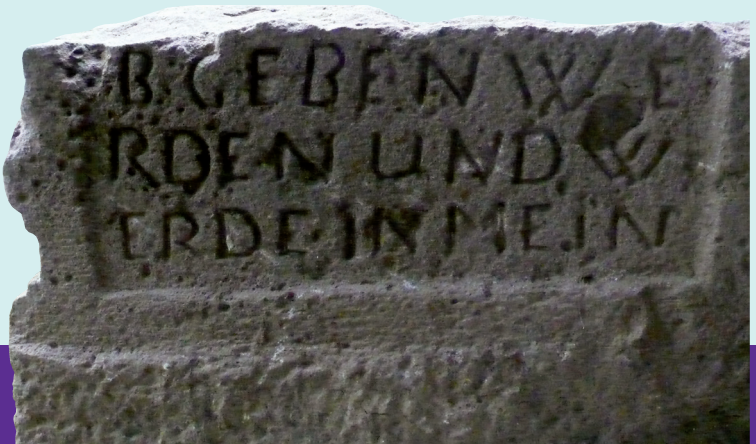 BGEBEN WE
RDEN UND W
ERDE IN MEIN